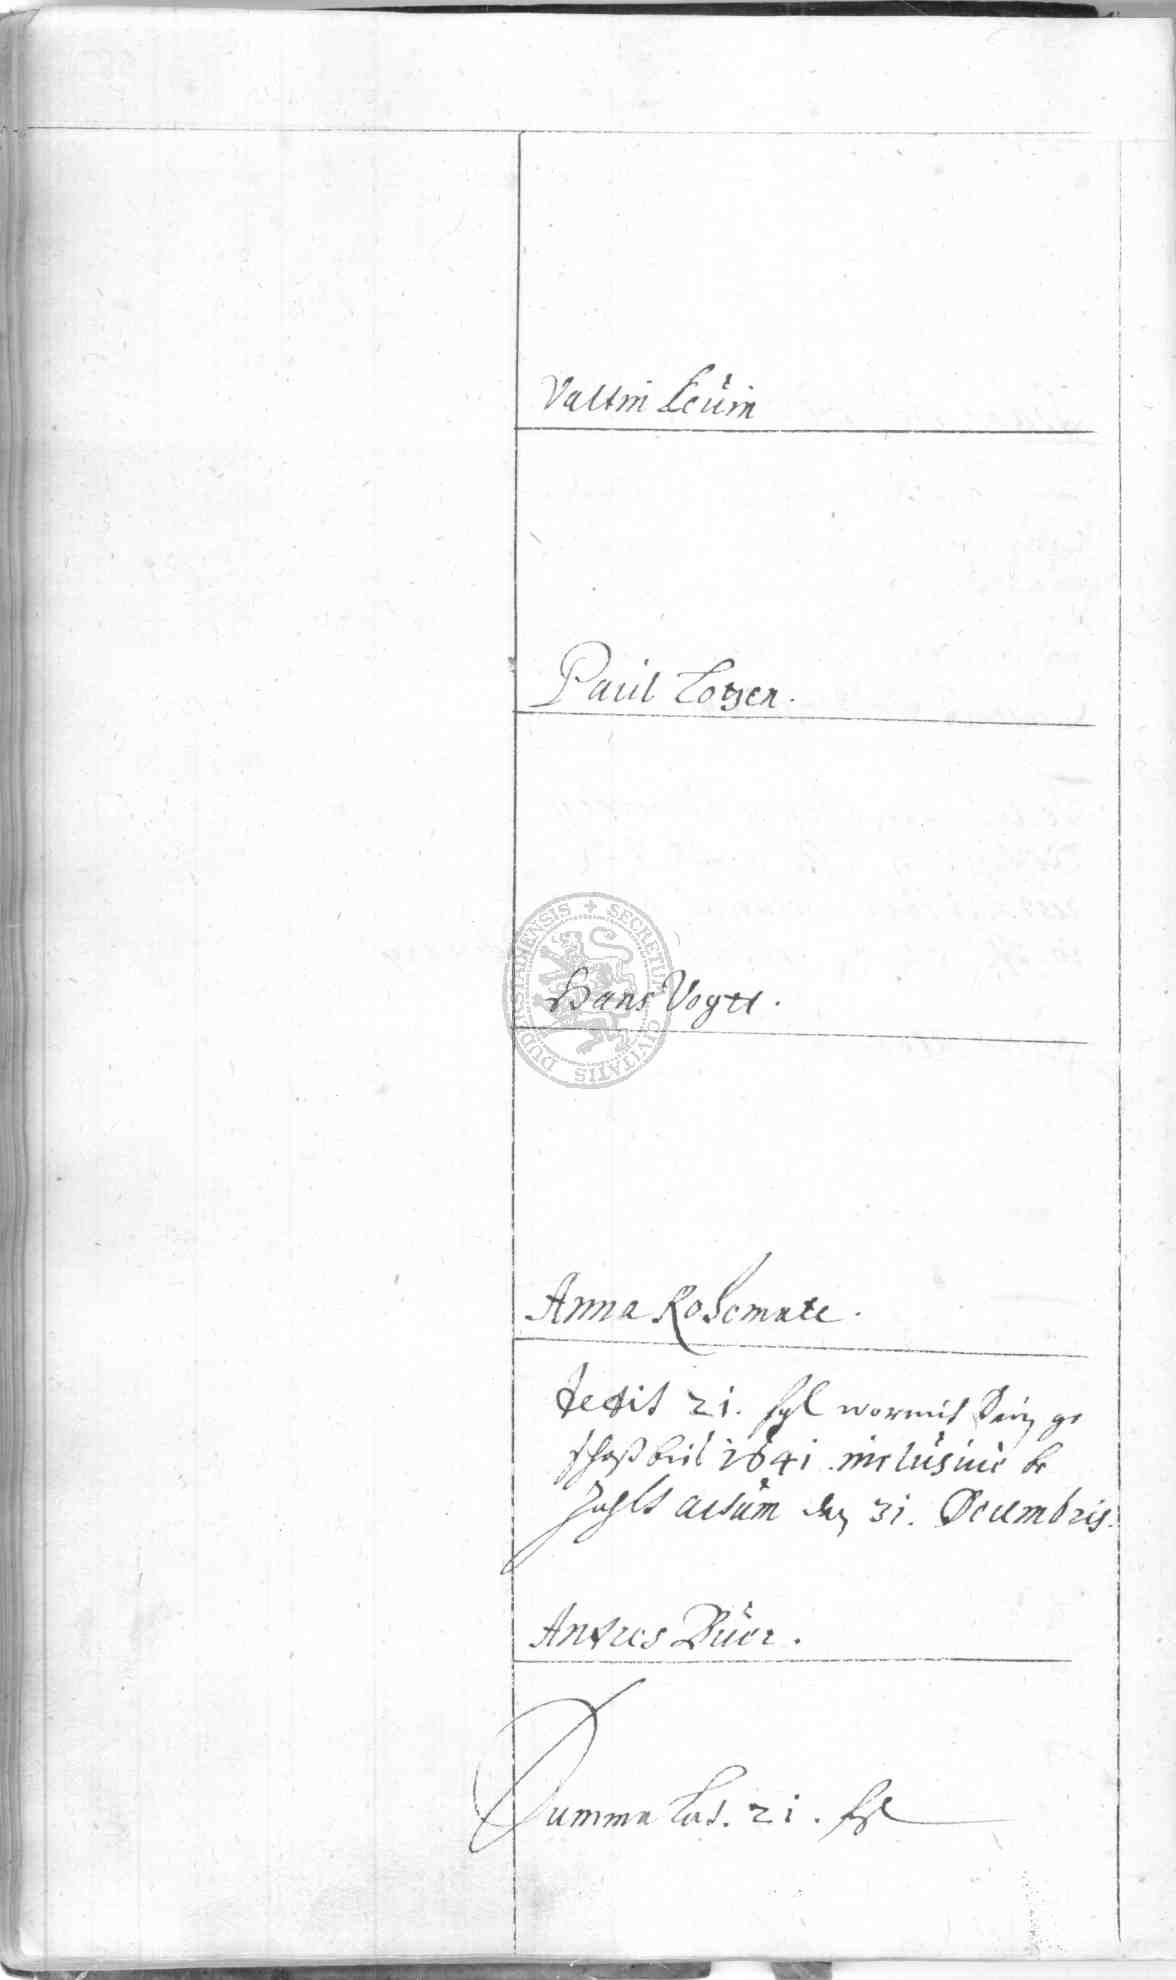 Valtin Leuin
Paul Lotzen.
SECRETUM CIVITATIS DUDERSTADIENSIS
Hans Vogtt.
Anna Rosemale.
dedit 21. ßgl wormit Ding ge
schoß bies 1641 inclusiue be
zahlt actum den 31. Decembris.
Andres Büer.
Summa Lat. 21. ßgl